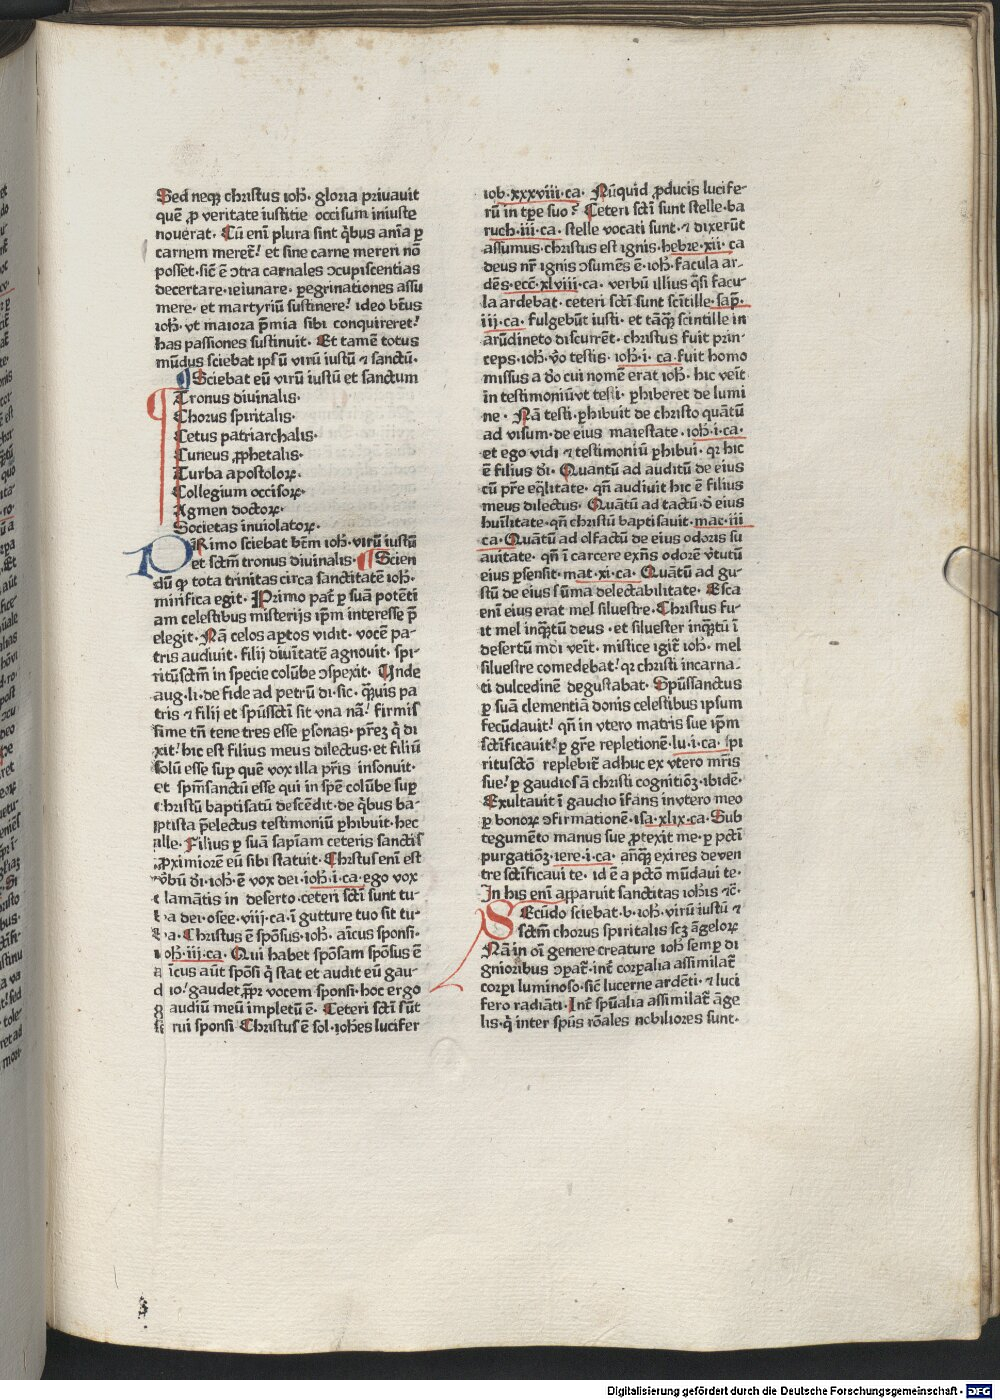 Sed neqꝫ christus ioh̄. gloria priuauit
quē ꝓ veritate iustitie occisum iniuste
nouerat. Cū enī plura sint q̄bus anīa ꝑ
carnem meret᷑! et sine carne mereri nō
posset. sic̄ ē ↄtra carnales ↄcupiscentias
decertare. ieiunare. ꝑegrinationes assu
mere. et martyriū sustinere! ideo bt̄us
ioh̄. vt maiora p̄mia sibi conquireret!
has passiones sustinuit. Et tamē totus
mūdus sciebat ip̄sū virū iustū ⁊ sanctū.
¶ Sciebat eū virū iustū et sanctum
Tronus diuinalis.
Chorus spiritalis.
Cetus patriarchalis.
Cuneus ꝓphetalis.
Turba apostoloꝝ.
Collegium occisoꝝ.
Agmen doctoꝝ.
Societas inuiolatoꝝ.
PRimo sciebat bēm ioh̄. virū iustū
et sctm̄ tronus diuinalis. ¶ Scien
dū ꝙ tota trinitas circa sanctitatē ioh̄.
mirifica egit. Primo pat᷑ ꝑ suā potēti
am celestibus misterijs ip̄m interesse p̄
elegit. Nā celos aꝑtos vidit. vocē pa-
tris audiuit. filij diuītatē agnouit. spi-
ritūsctm̄ in specie colūbe ↄspexit. Unde
aug. li. de fide ad petrū di. sic. q̄uis pa
tris ⁊ filij et spūssctī sit vna nā! firmis
sime tn̄ tene tres esse ꝑsonas. pr̄eꝫ q̄ di
xit! hic est filius meus dilectus. et filiū
solū esse suꝑ quē vox illa pr̄is insonuit.
et spm̄sanctū esse qui in spē colūbe suꝑ
christū baptisatū descēdit. de q̄bus ba-
ptista p̄electus testimoniū ꝑhibuit. hec
ille. Filius ꝑ suā sapīam ceteris sanctis
ꝓximiorē eū sibi statuit. Christus enī est
v̄bū dī. ioh̄. ē vox dei. ioh̄. i. ca. ego vox
clamātis in deserto. ceteri sctī sunt tu-
ba dei. osee. viij. ca. ī gutture tuo sit tu-
ba. Christus ē spōsus. ioh̄. aīcus sponsi.
ioh̄. iii. ca. Qui habet spōsam spōsus ē
aīcus aūt spōsi q̄ stat et audit eū gau-
dio! gaudet ꝓpt᷑ vocem sponsi. hoc ergo
gaudiū meū impletū ē. Ceteri sctī sūt
rui sponsi Christus ē sol. ioh̄es lucifer
iob. xxxviii. ca. Nūquid ꝓducis lucife-
rū in tp̄e suo? Ceteri sctī sunt stelle. ba
ruch. iii. ca. stelle vocati sunt. ⁊ dixerūt
assumus. christus est ignis. hebre. xii. ca
deus nr̄ ignis ↄsumēs ē. ioh̄. facula ar-
dēs. ecc̄. xlviii. ca. verbū illius q̄si facu-
la ardebat. ceteri sctī sunt scītille. sap̄.
iij. ca. fulgebūt iusti. et tāq̄ꝫ scintille in
arūdineto discurēt. christus fuit prin-
ceps. ioh̄. v̄o testis. ioh̄. i. ca. fuit homo
missus a do cui nomē erat ioh̄. hic veīt
in testimoniū vt testi. ꝑhiberet de lumi
ne. Nā testi. ꝑhibuit de christo quātū
ad visum. de eius maiestate. ioh̄. i. ca.
et ego vidi ⁊ testimoniū ꝑhibui. qr hic
ē filius dī. Quantū ad auditū de eius
cū pr̄e eq̄litate. qn̄ audiuit hic ē filius
meus dilectus. Quātū ad tactū d̄ eius
hūilitate. qn̄ christū baptisauit. mac. iii
ca. Quātū ad olfactū de eius odoris su
auitate. qn̄ ī carcere exn̄s odorē v̄tutū
eius ꝑsensit. mat. xi. ca. Quātū ad gu-
stū de eius sūma delectabilitate. Esca
enī eius erat mel siluestre. Christus fu-
it mel inq̄ꝫtū deus. et siluester inq̄ꝫtū ī
desertū mūdi veīt. mistice igit᷑ ioh̄. mel
siluestre comedebat! qr christi incarna-
ti dulcedinē degustabat. Spūssanctus
ꝑ suā clementiā donis celestibus ipsum
fecūdauit! qn̄ in vtero matris sue ip̄m
sctīficauit! ꝑ gr̄e repletionē. lu. i. ca. spi
ritusctō replebit᷑ adhuc ex vtero mr̄is
sue! ꝑ gaudiosā christi cognitiōꝫ. ibidē.
Exultauit ī gaudio īfans in vtero meo
ꝑ bonoꝝ ↄfirmationē. isa. xlix. ca. Sub
tegumēto manus sue ꝓtexit me. ꝑ pctī
purgatiōꝫ. iere. i. ca. an̄q̄ꝫ exires de ven
tre sctīficaui te. id ē a pctō mūdaui te.
In his enī apparuit sanctitas ioh̄is ⁊c̄.
SEcūdo sciebat. b. ioh̄. virū iustū ⁊
sctm̄ chorus spiritalis scꝫ āgeloꝝ
Nā in oī genere creature ioh̄ semꝑ di
gnioribus ↄꝑat᷑. int᷑ corꝑalia assimilat᷑
corꝑi luminoso. sic̄ lucerne ardēti. ⁊ luci
fero radiāti. Int᷑ spūalia assimilat᷑ āge
lis. q̄ inter spūs rōales nobiliores sunt.
Digitalisierung gefördert durch die Deutsche Forschungsgemeinschaft - DFG